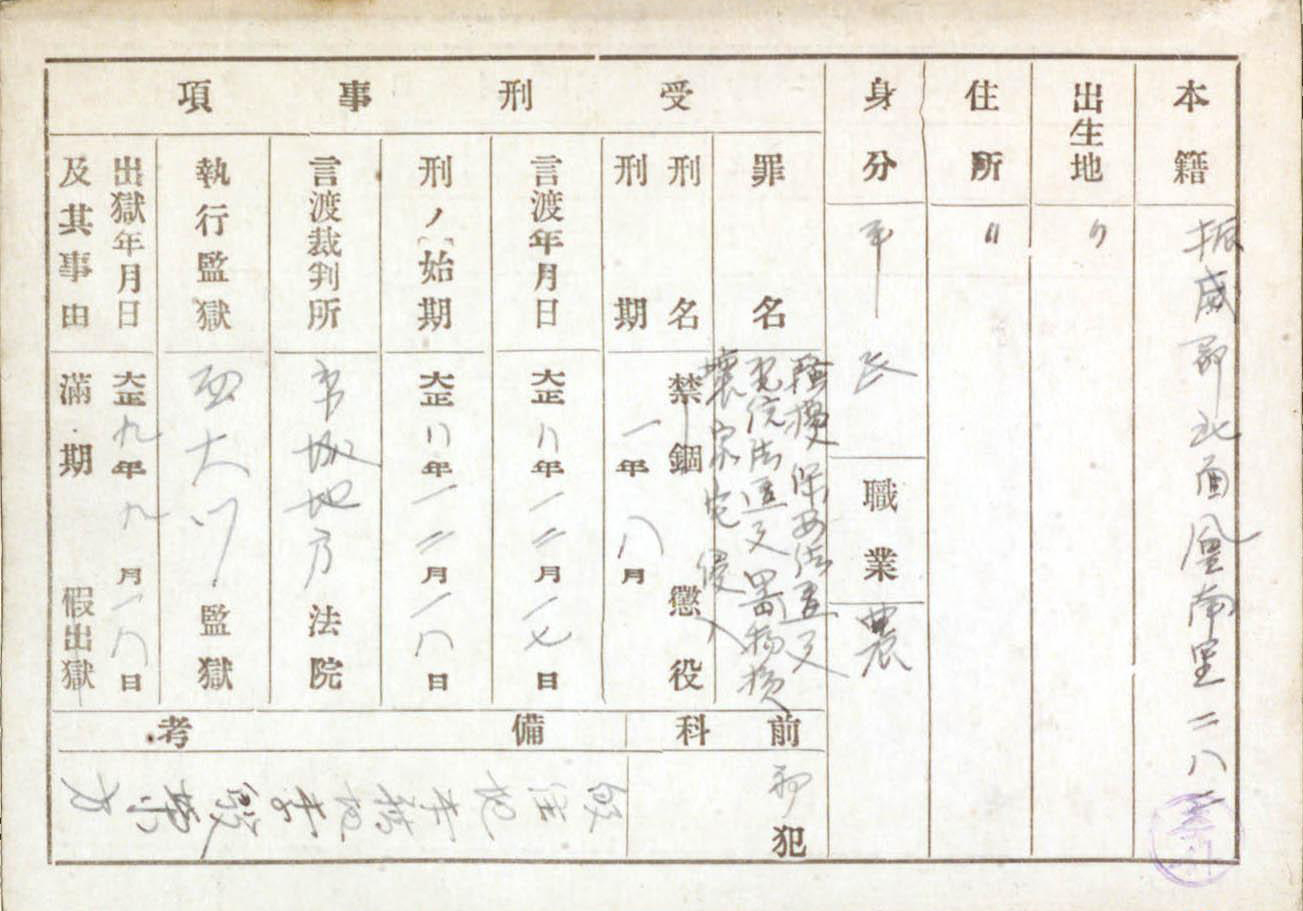 本籍
振威郡北面鳳南里二八二
出生地
〃
住所
〃
身分
平民
職業
農
受刑事項
罪名
騷擾保安法違反
出版法違反器物損
壞家宅侵入
刑名
禁錮 懲役
刑期
一年八月
言渡年月日
大正八年一二月一七日
刑ノ始期
大正八年一二月一八日
言渡裁判所
京城地方法院
執行監獄
西大門監獄
出獄年月日
及其事由
大正九年九月一八日
滿期 假出獄
前科
初犯
備考
假住